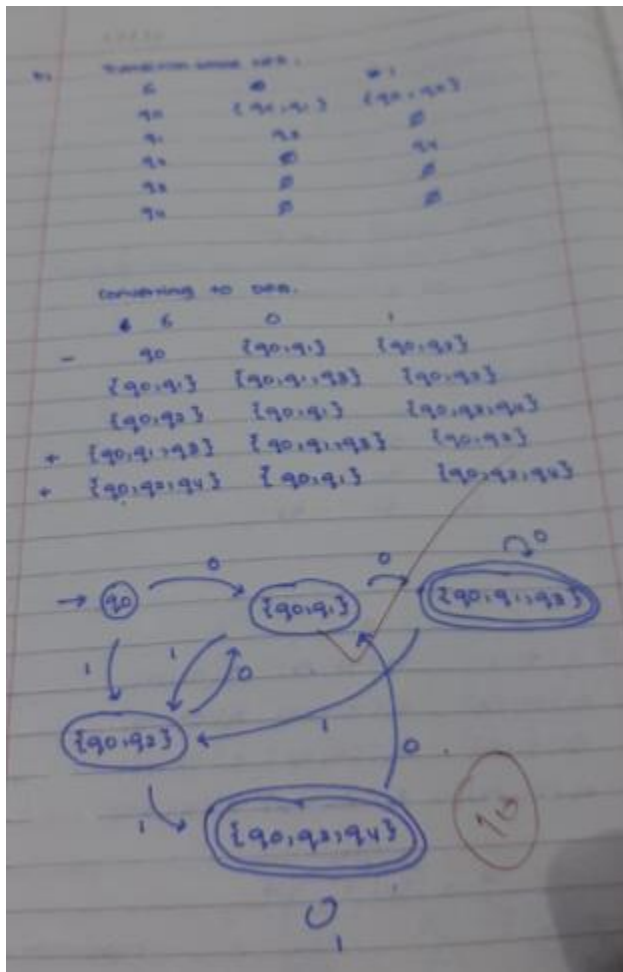 Transition table NFA.
δ 0 1
q0 {q0,q1} {q0,q2}
q1 q3 ∅
q2 ∅ q4
q3 ∅ ∅
q4 ∅ ∅
Converting to DFA.
δ 0 1
- q0 {q0,q1} {q0,q2}
{q0,q1} {q0,q1,q3} {q0,q2}
{q0,q2} {q0,q1} {q0,q2,q4}
+ {q0,q1,q3} {q0,q1,q3} {q0,q2}
+ {q0,q2,q4} {q0,q1} {q0,q2,q4}
0
0 0
q0 {q0,q1} {q0,q1,q3}
1 1 0
{q0,q2} 1 0
1 {q0,q2,q4}
1